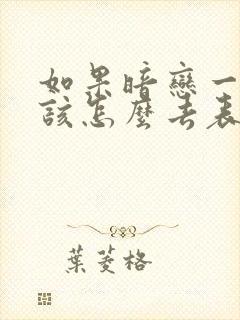 如果暗戀一
該怎麼去表
葉菱格